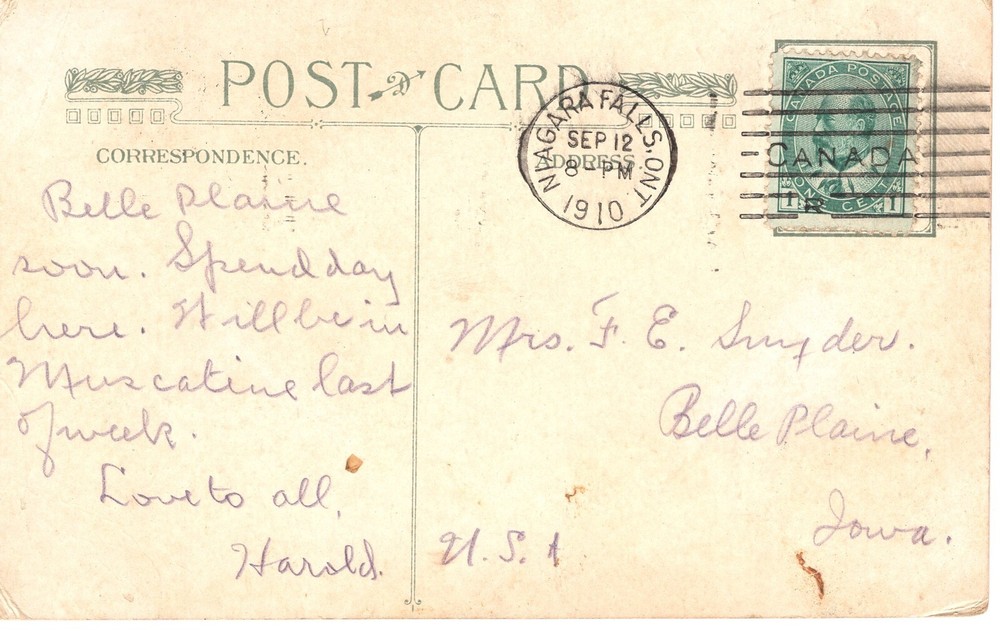 POST CARD
NIAGARA FALLS, ONT
SEP 12
8-PM
1910
CANADA POSTAGE
CANADA
ONE CENT
1 1
CORRESPONDENCE.
ADDRESS.
Belle Plaine
soon. Spend day
here. Will be in
Muscatine last
of week.
Love to all,
Harold.
Mrs. F. E. Snyder.
Belle Plaine,
Iowa.
U.S.A.